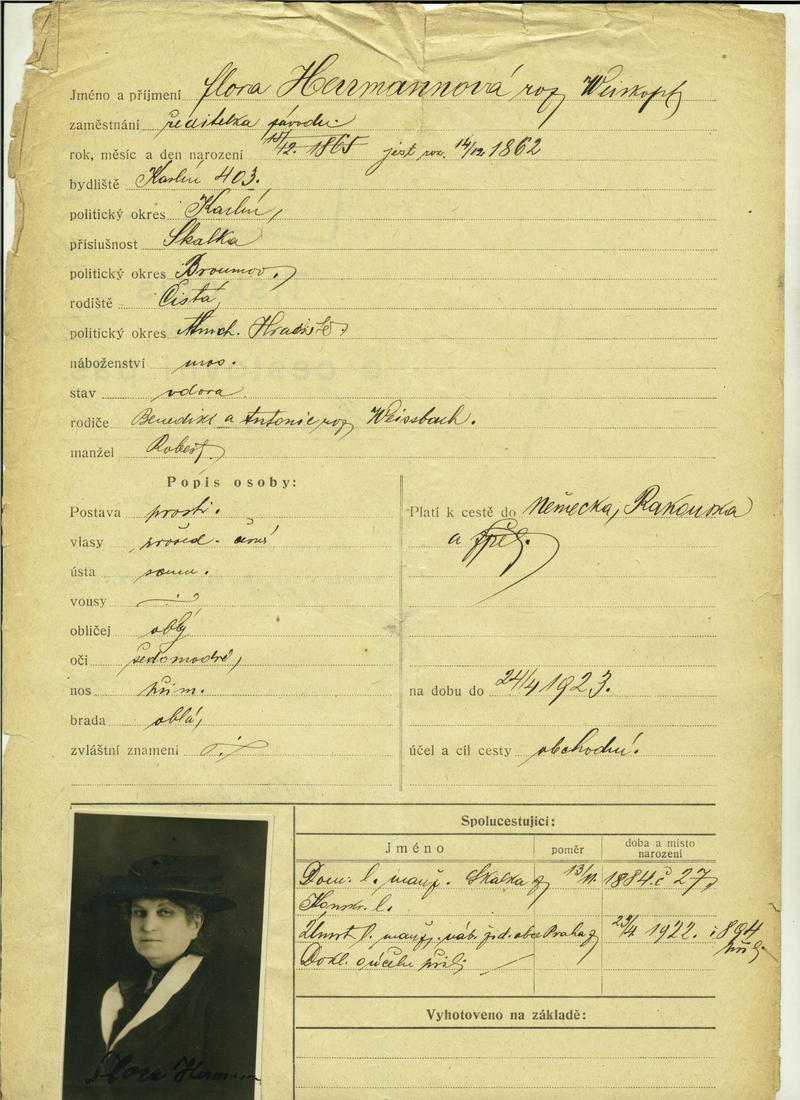 Jméno a příjmení Flora Herrmannová roz Weiskopf
zaměstnání ředitelka závodu.
rok, měsíc a den narození 15/12. 1865 jest roz. 14/12 1862
bydliště Karlín 403.
politický okres Karlín,
příslušnost Skalka
politický okres Broumov.
rodiště Čistá,
politický okres Mnich. Hradiště
náboženství mos.
stav vdova
rodiče Benedikt a Antonie roz Weissbach.
manžel Robert
Popis osoby:
Postava prostř.
vlasy prošed. černé
ústa soum.
vousy
obličej oblý
oči šedomodré,
nos přim.
brada oblá,
zvláštní znamení
Platí k cestě do Německa, Rakouska
a zpět.
na dobu do 24/4 1923.
účel a cíl cesty obchodní.
Spolucestující:
Jméno poměr doba a místo narození
Dom. l. manž. Skalka 13/11 1884 č 27
Konskr. l.
Úmrt l. manž. náb. žid. obce Praha 23/4 1922. 1894
Dokl. o účelu přilož
Vyhotoveno na základě:
Flora Herrmann